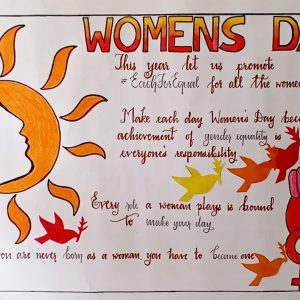 WOMENS DA
This year let us promote
#EachForEqual for all the wome
Make each day Women's Day bec
achievement of gender equality is
everyone's responsibility.
Every role a woman plays is bound
to make your day.
ou are never born as a woman, you have to become one